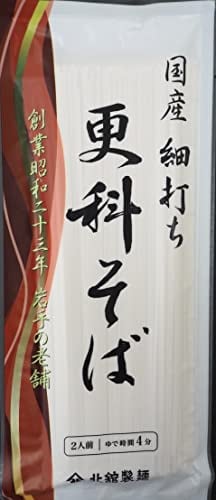 国産 細打ち
更科そば
創業昭和二十三年 岩手の老舗
2人前 ゆで時間4分
北舘製麺